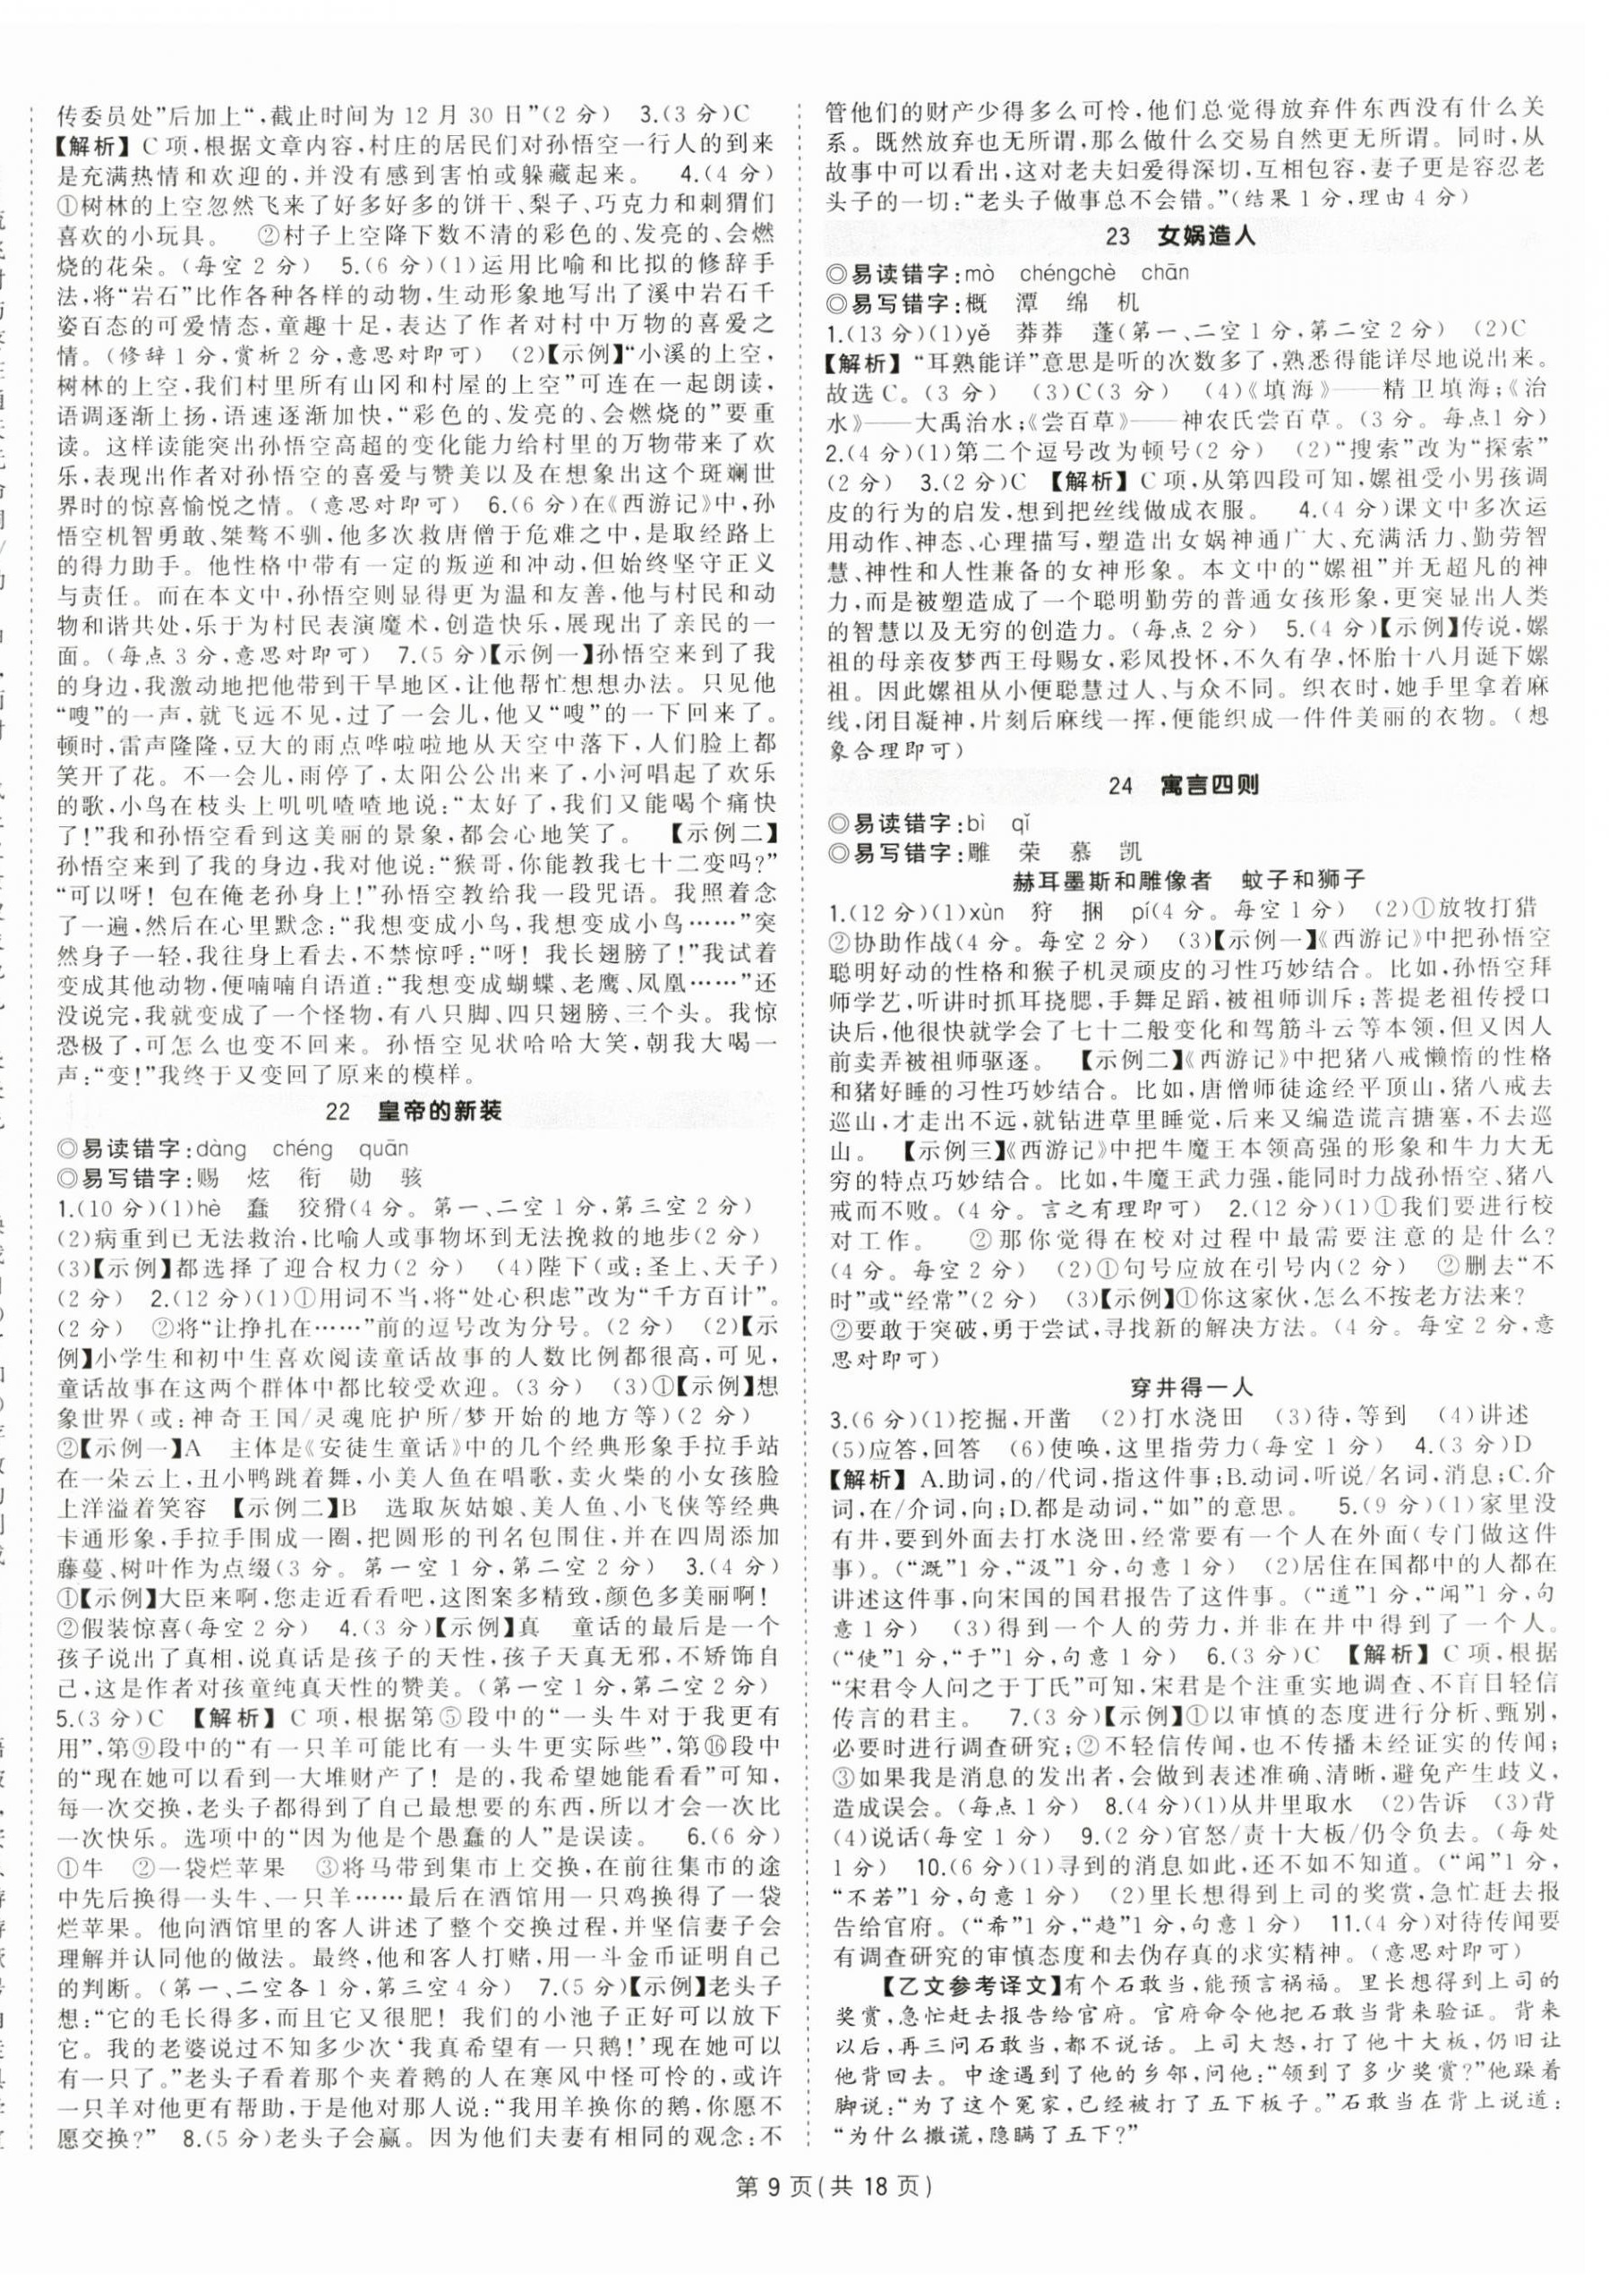 传委员处”后加上“，截止时间为 12 月 30 日”(2 分)　3.(3 分)C
【解析】C 项，根据文章内容，村庄的居民们对孙悟空一行人的到来
是充满热情和欢迎的，并没有感到害怕或躲藏起来。　4.(4 分)
①树林的上空忽然飞来了好多好多的饼干、梨子、巧克力和刺猬们
喜欢的小玩具。　②村子上空降下数不清的彩色的、发亮的、会燃
烧的花朵。(每空 2 分)　5.(6 分)(1)运用比喻和比拟的修辞手
法，将“岩石”比作各种各样的动物，生动形象地写出了溪中岩石千
姿百态的可爱情态，童趣十足，表达了作者对村中万物的喜爱之
情。(修辞 1 分，赏析 2 分，意思对即可)　(2)【示例】“小溪的上空，
树林的上空，我们村里所有山冈和村屋的上空”可连在一起朗读，
语调逐渐上扬，语速逐渐加快，“彩色的、发亮的、会燃烧的”要重
读。这样读能突出孙悟空高超的变化能力给村里的万物带来了欢
乐，表现出作者对孙悟空的喜爱与赞美以及在想象出这个斑斓世
界时的惊喜愉悦之情。(意思对即可)　6.(6 分)在《西游记》中，孙
悟空机智勇敢、桀骜不驯，他多次救唐僧于危难之中，是取经路上
的得力助手。他性格中带有一定的叛逆和冲动，但始终坚守正义
与责任。而在本文中，孙悟空则显得更为温和友善，他与村民和动
物和谐共处，乐于为村民表演魔术，创造快乐，展现出了亲民的一
面。(每点 3 分，意思对即可)　7.(5 分)【示例一】孙悟空来到了我
的身边，我激动地把他带到干旱地区，让他帮忙想想办法。只见他
“嗖”的一声，就飞远不见，过了一会儿，他又“嗖”的一下回来了。
顿时，雷声隆隆，豆大的雨点哗啦啦地从天空中落下，人们脸上都
笑开了花。不一会儿，雨停了，太阳公公出来了，小河唱起了欢乐
的歌，小鸟在枝头上叽叽喳喳地说：“太好了，我们又能喝个痛快
了！”我和孙悟空看到这美丽的景象，都会心地笑了。　【示例二】
孙悟空来到了我的身边，我对他说：“猴哥，你能教我七十二变吗？”
“可以呀！包在俺老孙身上！”孙悟空教给我一段咒语。我照着念
了一遍，然后在心里默念：“我想变成小鸟，我想变成小鸟……”突
然身子一轻，我往身上看去，不禁惊呼：“呀！我长翅膀了！”我试着
变成其他动物，便喃喃自语道：“我想变成蝴蝶、老鹰、凤凰……”还
没说完，我就变成了一个怪物，有八只脚、四只翅膀、三个头。我惊
恐极了，可怎么也变不回来。孙悟空见状哈哈大笑，朝我大喝一
声：“变！”我终于又变回了原来的模样。
22　皇帝的新装
◎易读错字：dàng　chéng　quān
◎易写错字：赐　炫　衔　勋　骇
1.(10 分)(1)hè　蠢　狡猾(4 分。第一、二空 1 分，第三空 2 分)
(2)病重到已无法救治，比喻人或事物坏到无法挽救的地步(2 分)
(3)【示例】都选择了迎合权力(2 分)　(4)陛下(或：圣上、天子)
(2 分)　2.(12 分)(1)①用词不当，将“处心积虑”改为“千方百计”。
(2 分)　②将“让挣扎在……”前的逗号改为分号。(2 分)　(2)【示
例】小学生和初中生喜欢阅读童话故事的人数比例都很高，可见，
童话故事在这两个群体中都比较受欢迎。(3 分)　(3)①【示例】想
象世界(或：神奇王国/灵魂庇护所/梦开始的地方等)(2 分)
②【示例一】A　主体是《安徒生童话》中的几个经典形象手拉手站
在一朵云上，丑小鸭跳着舞，小美人鱼在唱歌，卖火柴的小女孩脸
上洋溢着笑容　【示例二】B　选取灰姑娘、美人鱼、小飞侠等经典
卡通形象，手拉手围成一圈，把圆形的刊名包围住，并在四周添加
藤蔓、树叶作为点缀(3 分。第一空 1 分，第二空 2 分)　3.(4 分)
①【示例】大臣来啊，您走近看看吧，这图案多精致，颜色多美丽啊！
②假装惊喜(每空 2 分)　4.(3 分)【示例】真　童话的最后是一个
孩子说出了真相，说真话是孩子的天性，孩子天真无邪，不矫饰自
己，这是作者对孩童纯真天性的赞美。(第一空 1 分，第二空 2 分)
5.(3 分)C　【解析】C 项，根据第⑤段中的“一头牛对于我更有
用”，第⑨段中的“有一只羊可能比有一头牛更实际些”，第⑯段中
的“现在她可以看到一大堆财产了！是的，我希望她能看看”可知，
每一次交换，老头子都得到了自己最想要的东西，所以才会一次比
一次快乐。选项中的“因为他是个愚蠢的人”是误读。　6.(6 分)
①牛　②一袋烂苹果　③将马带到集市上交换，在前往集市的途
中先后换得一头牛、一只羊……最后在酒馆用一只鸡换得了一袋
烂苹果。他向酒馆里的客人讲述了整个交换过程，并坚信妻子会
理解并认同他的做法。最终，他和客人打赌，用一斗金币证明自己
的判断。(第一、二空各 1 分，第三空 4 分)　7.(5 分)【示例】老头子
想：“它的毛长得多，而且它又很肥！我们的小池子正好可以放下
它。我的老婆说过不知多少次‘我真希望有一只鹅！’现在她可以
有一只了。”老头子看着那个夹着鹅的人在寒风中怪可怜的，或许
一只羊对他更有帮助，于是他对那人说：“我用羊换你的鹅，你愿不
愿交换？”　8.(5 分)老头子会赢。因为他们夫妻有相同的观念：不
管他们的财产少得多么可怜，他们总觉得放弃件东西没有什么关
系。既然放弃也无所谓，那么做什么交易自然更无所谓。同时，从
故事中可以看出，这对老夫妇爱得深切，互相包容，妻子更是容忍老
头子的一切：“老头子做事总不会错。”(结果 1 分，理由 4 分)
23　女娲造人
◎易读错字：mò　chéngchè　chān
◎易写错字：概　潭　绵　机
1.(13 分)(1)yě　莽莽　蓬(第一、二空 1 分，第二空 2 分)　(2)C
【解析】“耳熟能详”意思是听的次数多了，熟悉得能详尽地说出来。
故选 C。(3 分)　(3)C(3 分)　(4)《填海》——精卫填海；《治
水》——大禹治水；《尝百草》——神农氏尝百草。(3 分。每点1 分)
2.(4 分)(1)第二个逗号改为顿号(2 分)　(2)“搜索”改为“探索”
(2 分)　3.(2 分)C　【解析】C 项，从第四段可知，嫘祖受小男孩调
皮的行为的启发，想到把丝线做成衣服。　4.(4 分)课文中多次运
用动作、神态、心理描写，塑造出女娲神通广大、充满活力、勤劳智
慧、神性和人性兼备的女神形象。本文中的“嫘祖”并无超凡的神
力，而是被塑造成了一个聪明勤劳的普通女孩形象，更突显出人类
的智慧以及无穷的创造力。(每点 2 分)　5.(4 分)【示例】传说，嫘
祖的母亲夜梦西王母赐女，彩凤投怀，不久有孕，怀胎十八月诞下嫘
祖。因此嫘祖从小便聪慧过人、与众不同。织衣时，她手里拿着麻
线，闭目凝神，片刻后麻线一挥，便能织成一件件美丽的衣物。(想
象合理即可)
24　寓言四则
◎易读错字：bì　qǐ
◎易写错字：雕　荣　慕　凯
赫耳墨斯和雕像者　蚊子和狮子
1.(12 分)(1)xùn　狩　捆　pí(4 分。每空 1 分)　(2)①放牧打猎
②协助作战(4 分。每空 2 分)　(3)【示例一】《西游记》中把孙悟空
聪明好动的性格和猴子机灵顽皮的习性巧妙结合。比如，孙悟空拜
师学艺，听讲时抓耳挠腮，手舞足蹈，被祖师训斥；菩提老祖传授口
诀后，他很快就学会了七十二般变化和驾筋斗云等本领，但又因人
前卖弄被祖师驱逐。　【示例二】《西游记》中把猪八戒懒惰的性格
和猪好睡的习性巧妙结合。比如，唐僧师徒途经平顶山，猪八戒去
巡山，才走出不远，就钻进草里睡觉，后来又编造谎言搪塞，不去巡
山。　【示例三】《西游记》中把牛魔王本领高强的形象和牛力大无
穷的特点巧妙结合。比如，牛魔王武力强，能同时力战孙悟空、猪八
戒而不败。(4 分。言之有理即可)　2.(12 分)(1)①我们要进行校
对工作。　②那你觉得在校对过程中最需要注意的是什么？
(4 分。每空 2 分)　(2)①句号应放在引号内(2 分)　②删去“不
时”或“经常”(2 分)　(3)【示例】①你这家伙，怎么不按老方法来？
②要敢于突破，勇于尝试，寻找新的解决方法。(4 分。每空 2 分，意
思对即可)
穿井得一人
3.(6 分)(1)挖掘，开凿　(2)打水浇田　(3)待，等到　(4)讲述
(5)应答，回答　(6)使唤，这里指劳力(每空 1 分)　4.(3 分)D
【解析】A.助词，的/代词，指这件事；B.动词，听说/名词，消息；C.介
词，在/介词，向；D.都是动词，“如”的意思。　5.(9 分)(1)家里没
有井，要到外面去打水浇田，经常要有一个人在外面(专门做这件
事)。(“溉”1 分，“汲”1 分，句意 1 分)　(2)居住在国都中的人都在
讲述这件事，向宋国的国君报告了这件事。(“道”1 分，“闻”1 分，句
意 1 分)　(3)得到一个人的劳力，并非在井中得到了一个人。
(“使”1 分，“于”1 分，句意 1 分)　6.(3 分)C　【解析】C 项，根据
“宋君令人问之于丁氏”可知，宋君是个注重实地调查、不盲目轻信
传言的君主。　7.(3 分)【示例】①以审慎的态度进行分析、甄别，
必要时进行调查研究；②不轻信传闻，也不传播未经证实的传闻；
③如果我是消息的发出者，会做到表述准确、清晰，避免产生歧义，
造成误会。(每点 1 分)　8.(4 分)(1)从井里取水　(2)告诉　(3)背
(4)说话(每空 1 分)　9.(2 分)官怒/责十大板/仍令负去。(每处
1 分)　10.(6 分)(1)寻到的消息如此，还不如不知道。(“闻”1 分，
“不若”1 分，句意 1 分)　(2)里长想得到上司的奖赏，急忙赶去报
告给官府。(“希”1 分，“趋”1 分，句意 1 分)　11.(4 分)对待传闻要
有调查研究的审慎态度和去伪存真的求实精神。(意思对即可)
【乙文参考译文】有个石敢当，能预言祸福。里长想得到上司的
奖赏，急忙赶去报告给官府。官府命令他把石敢当背来验证。背来
以后，再三问石敢当，都不说话。上司大怒，打了他十大板，仍旧让
他背回去。中途遇到了他的乡邻，问他：“领到了多少奖赏？”他跺着
脚说：“为了这个冤家，已经被打了五下板子。”石敢当在背上说道：
“为什么撒谎，隐瞒了五下？”
第 9 页(共 18 页)